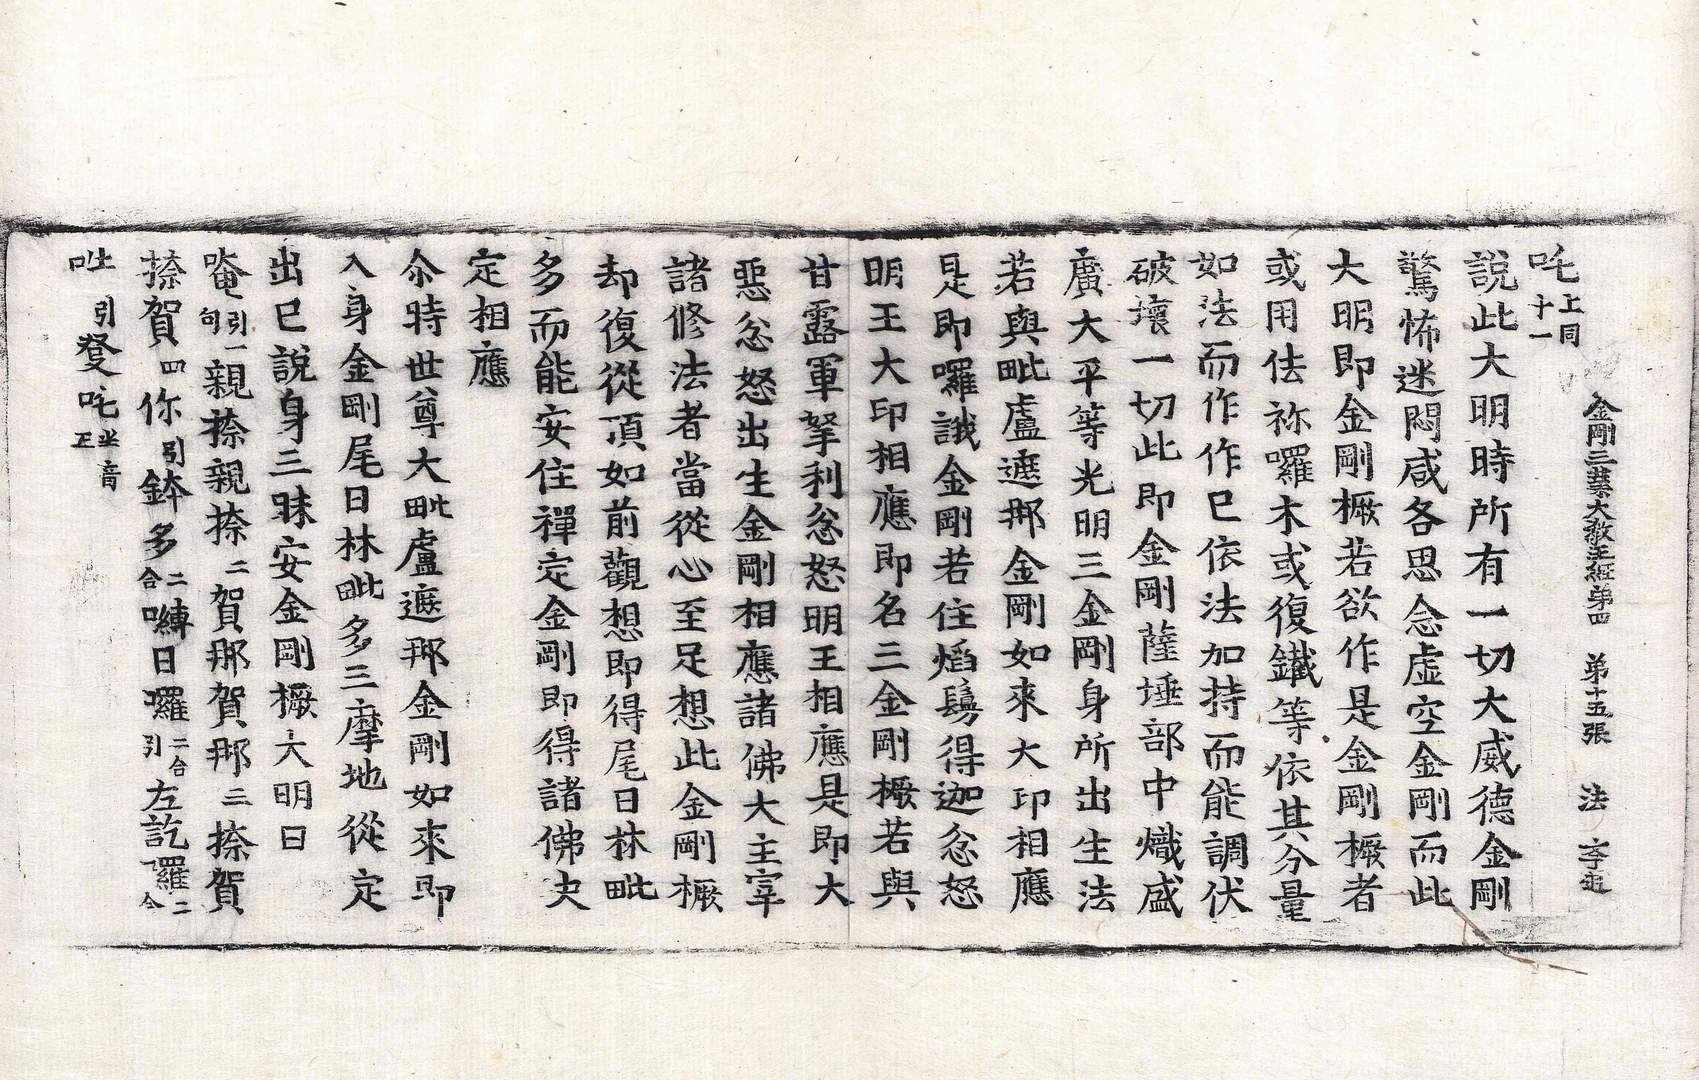 金剛三業大教王經第四　第十五張　法　字号
吒上同十一
說此大明時所有一切大威德金剛
驚怖迷悶咸各思念虛空金剛而此
大明即金剛橛若欲作是金剛橛者
或用佉祢囉木或復鐵等依其分量
如法而作作已依法加持而能調伏
破壞一切此即金剛薩埵部中熾盛
廣大平等光明三金剛身所出生法
若與毗盧遮那金剛如來大印相應
是即囉誐金剛若住焰鬘得迦忿怒
明王大印相應即名三金剛橛若與
甘露軍拏利忿怒明王相應是即大
惡忿怒出生金剛相應諸佛大主宰
諸修法者當從心至足想此金剛橛
却復從頂如前觀想即得尾日林毗
多而能安住禪定金剛即得諸佛決
定相應
尒時世尊大毗盧遮那金剛如來即
入身金剛尾日林毗多三摩地從定
出已說身三昧安金剛橛大明曰
唵引一句親捺親捺二賀那賀那三捺賀
捺賀四你引鉢多二合嚩日囉二合引左訖囉二合